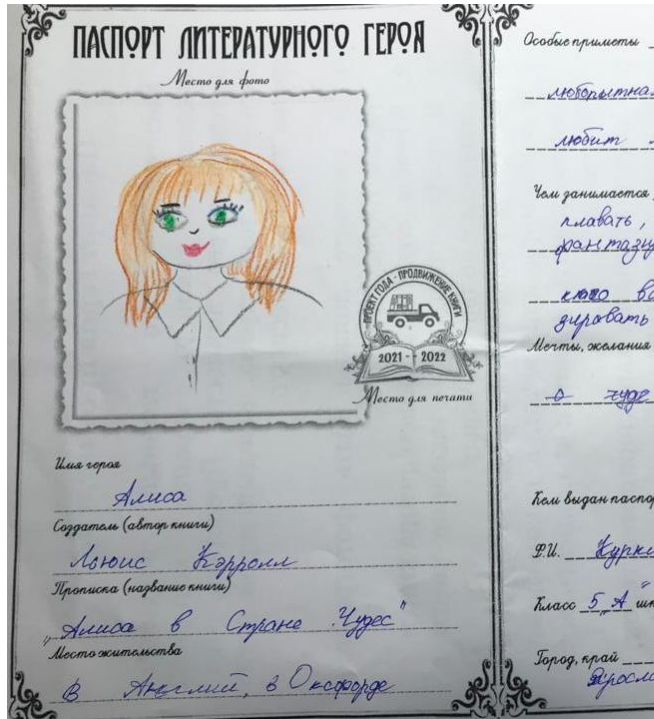 ПАСПОРТ ЛИТЕРАТУРНОГО ГЕРОЯ
Место для фото
ПРОЕКТ ГОДА - ПРОДВИЖЕНИЕ КНИГИ
2021 - 2022
Место для печати
Имя героя
Алиса
Создатель (автор книги)
Льюис Кэрролл
Прописка (название книги)
„Алиса в Стране Чудес"
Место жительства
В Англий, в Оксфорде
Особые приметы
любит
Чем занимается
плавать,
зировать
Мечты, желания
о чуде
Кем выдан
Ф.И.
Класс 5 „А"
Город, край